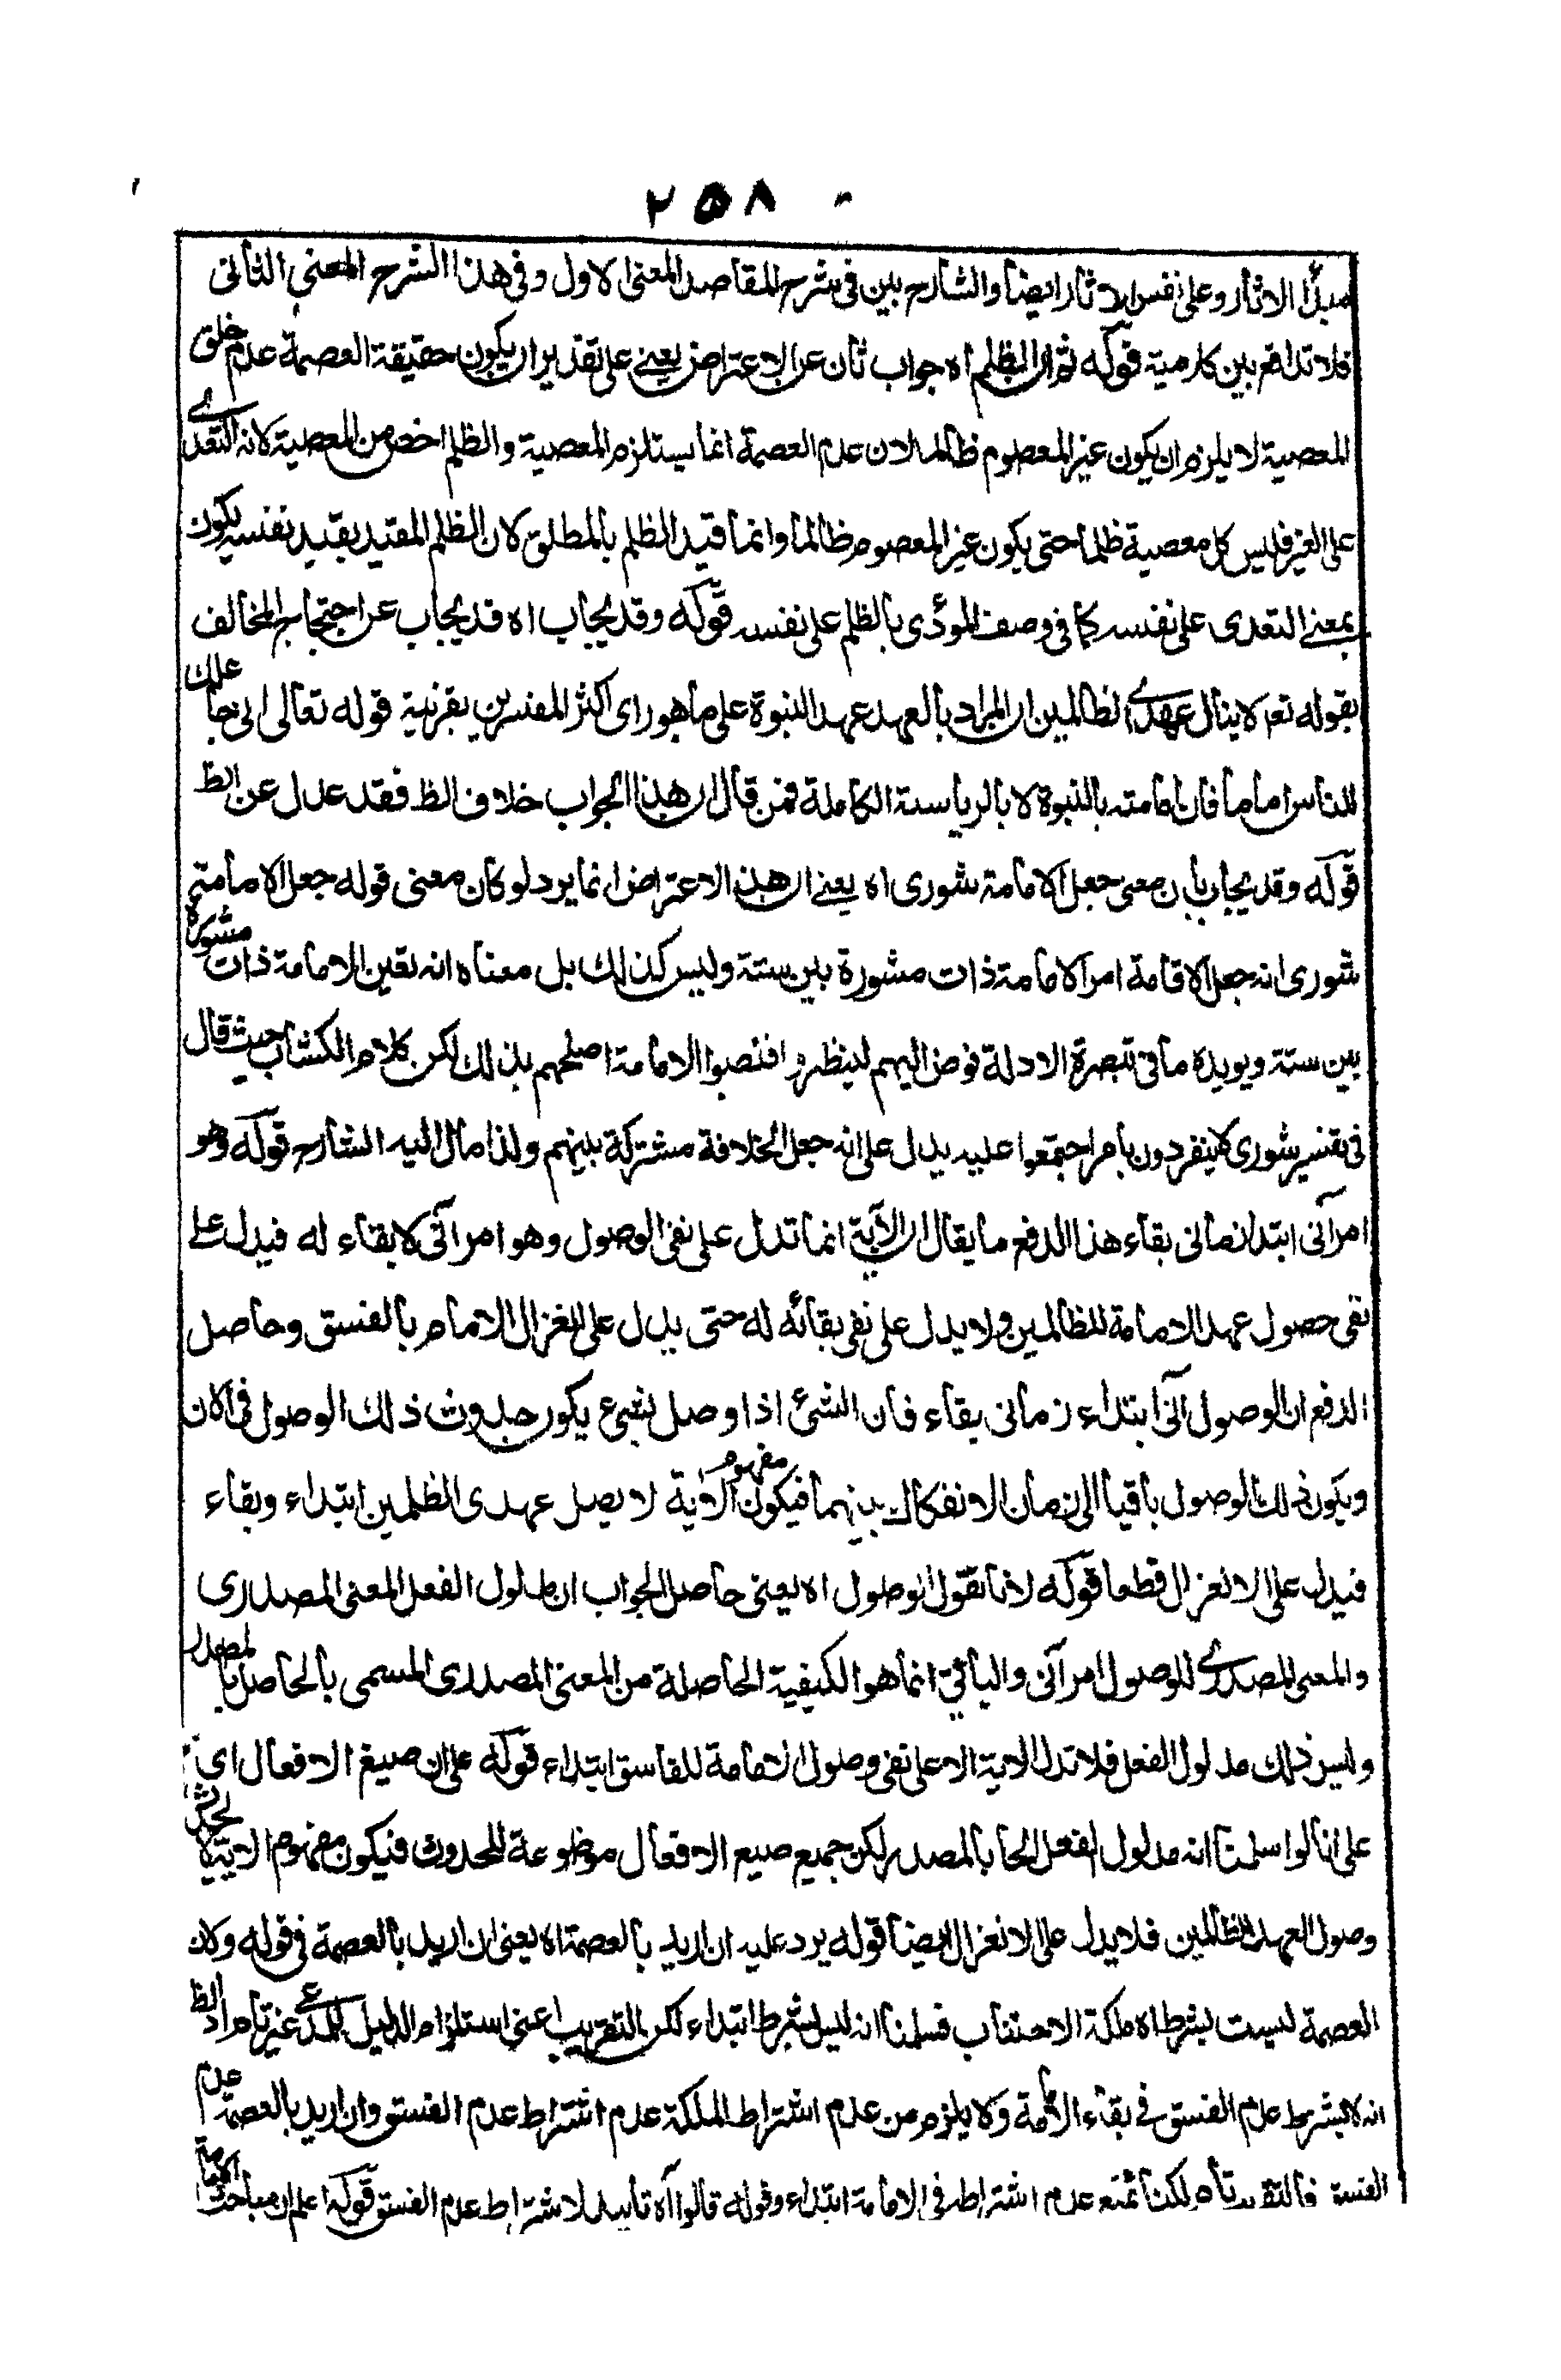 ٢٥٨
مبدأ الاثار وعلى نفس الاثار ايضا والشارح بين فى شرح المقاصد المعنى الاول وفى هذا الشرح المعنى الثانى
فلا تدافع بين كلاميه قوله ثم ان الظلم اه جواب ثان عن الاعتراض يعنى على تقدير ان يكون حقيقة العصمة عدم خلق
المعصية لا يلزم ان يكون غير المعصوم ظالما لان عدم العصمة انما يستلزم المعصية والظلم اخص من المعصية لانه التعدى
على الغير فليس كل معصية ظلما حتى يكون غير المعصوم ظالما وانما قيد الظلم بالمطلق لان الظلم المقيد بقيد نفسه يكون
بمعنى التعدى على نفسه كما فى وصف المؤدى بالظلم على نفسه قوله وقد يجاب اه قد يجاب عن احتجاج المخالف
بقوله تعه لا ينال عهدى الظالمين ان المراد بالعهد عهد النبوة على ما هو راى اكثر المفسرين بقرينة قوله تعالى انى جاعلك
للناس اماما فان امامته بالنبوة لا بالرياسة الكاملة فمن قال ان هذا الجواب خلاف الظ فقد عدل عن الظ
قوله وقد يجاب بان معنى جعل الامامة شورى اه يعنى ان هذا الاعتراض انما يرد لو كان معنى قوله جعل الامامة
شورى انه جعل الاقامة امر الامامة ذات مشورة بين ستة وليس كذلك بل معناه انه تعين الامامة ذات مشورة
بين ستة ويويده ما فى تبصرة الادلة فوض اليهم لينظروا فنصبوا الامامة اصلحهم بذلك لكن كلام الكشاف حيث قال
فى تفسير شورى لا ينفردون بامر اجتمعوا عليه يدل على انه جعل الخلافة مشتركة بينهم ولذا مال اليه الشارح قوله وهو
امر آنى ابتداء زمانى بقاء هذا الدفع ما يقال ان الآية انما تدل على نفى الوصول وهو امر آنى لا بقاء له فيدل على
نفى حصول عهد الامامة للظالمين ولا يدل على نفى بقائه له حتى يدل على انعزال الامام بالفسق وحاصل
الدفع ان الوصول آنى ابتداء زمانى بقاء فان الشئ اذا وصل بشئ يكون حدوث ذلك الوصول فى الان
ويكون ذلك الوصول باقيا الى زمان الانفكاك بينهما فيكون مفهوم الاية لا يصل عهدى الظلمين ابتداء وبقاء
فيدل على الانعزال قطعا قوله لانا نقول الوصول اه يعنى حاصل الجواب ان مدلول الفعل المعنى المصدرى
والمعنى المصدرى للوصول امر آنى والباقى انما هو الكيفية الحاصلة من المعنى المصدرى المسمى بالحاصل بالمصدر
وليس ذلك مدلول الفعل فلا تدل الاية الا على نفى وصول الامامة للفاسق ابتداء قوله على ان صيغ الافعال اى
على انا لو سلمنا انه مدلول الفعل الحا بالمصدر لكن جميع صيغ الافعال موضوعة للحدوث فيكون مفهوم الاية لا يحدث
وصول العهد الظالمين فلا يدل على الانعزال ايضا قوله يرد عليه ان اريد بالعصمة اه يعنى ان اريد بالعصمة فى قوله ولان
العصمة ليست بشرط اه ملكة الاجتناب فسلمنا انه ليس بشرط ابتداء لكن التقريب اعنى استلزام الدليل للمدعى غير تام اذ الظ
انه لا يشرط عدم الفسق فى بقاء الامامة ولا يلزم من عدم اشتراط الملكة عدم اشتراط عدم الفسق وان اريد بالعصمة عدم
الفسق فالتقريب تام لكن نمنع عدم اشتراطه فى الامامة ابتداء وقوله قالوا آه تأييد لاشتراط عدم الفسق قوله اعلم ان مباحث الامامة